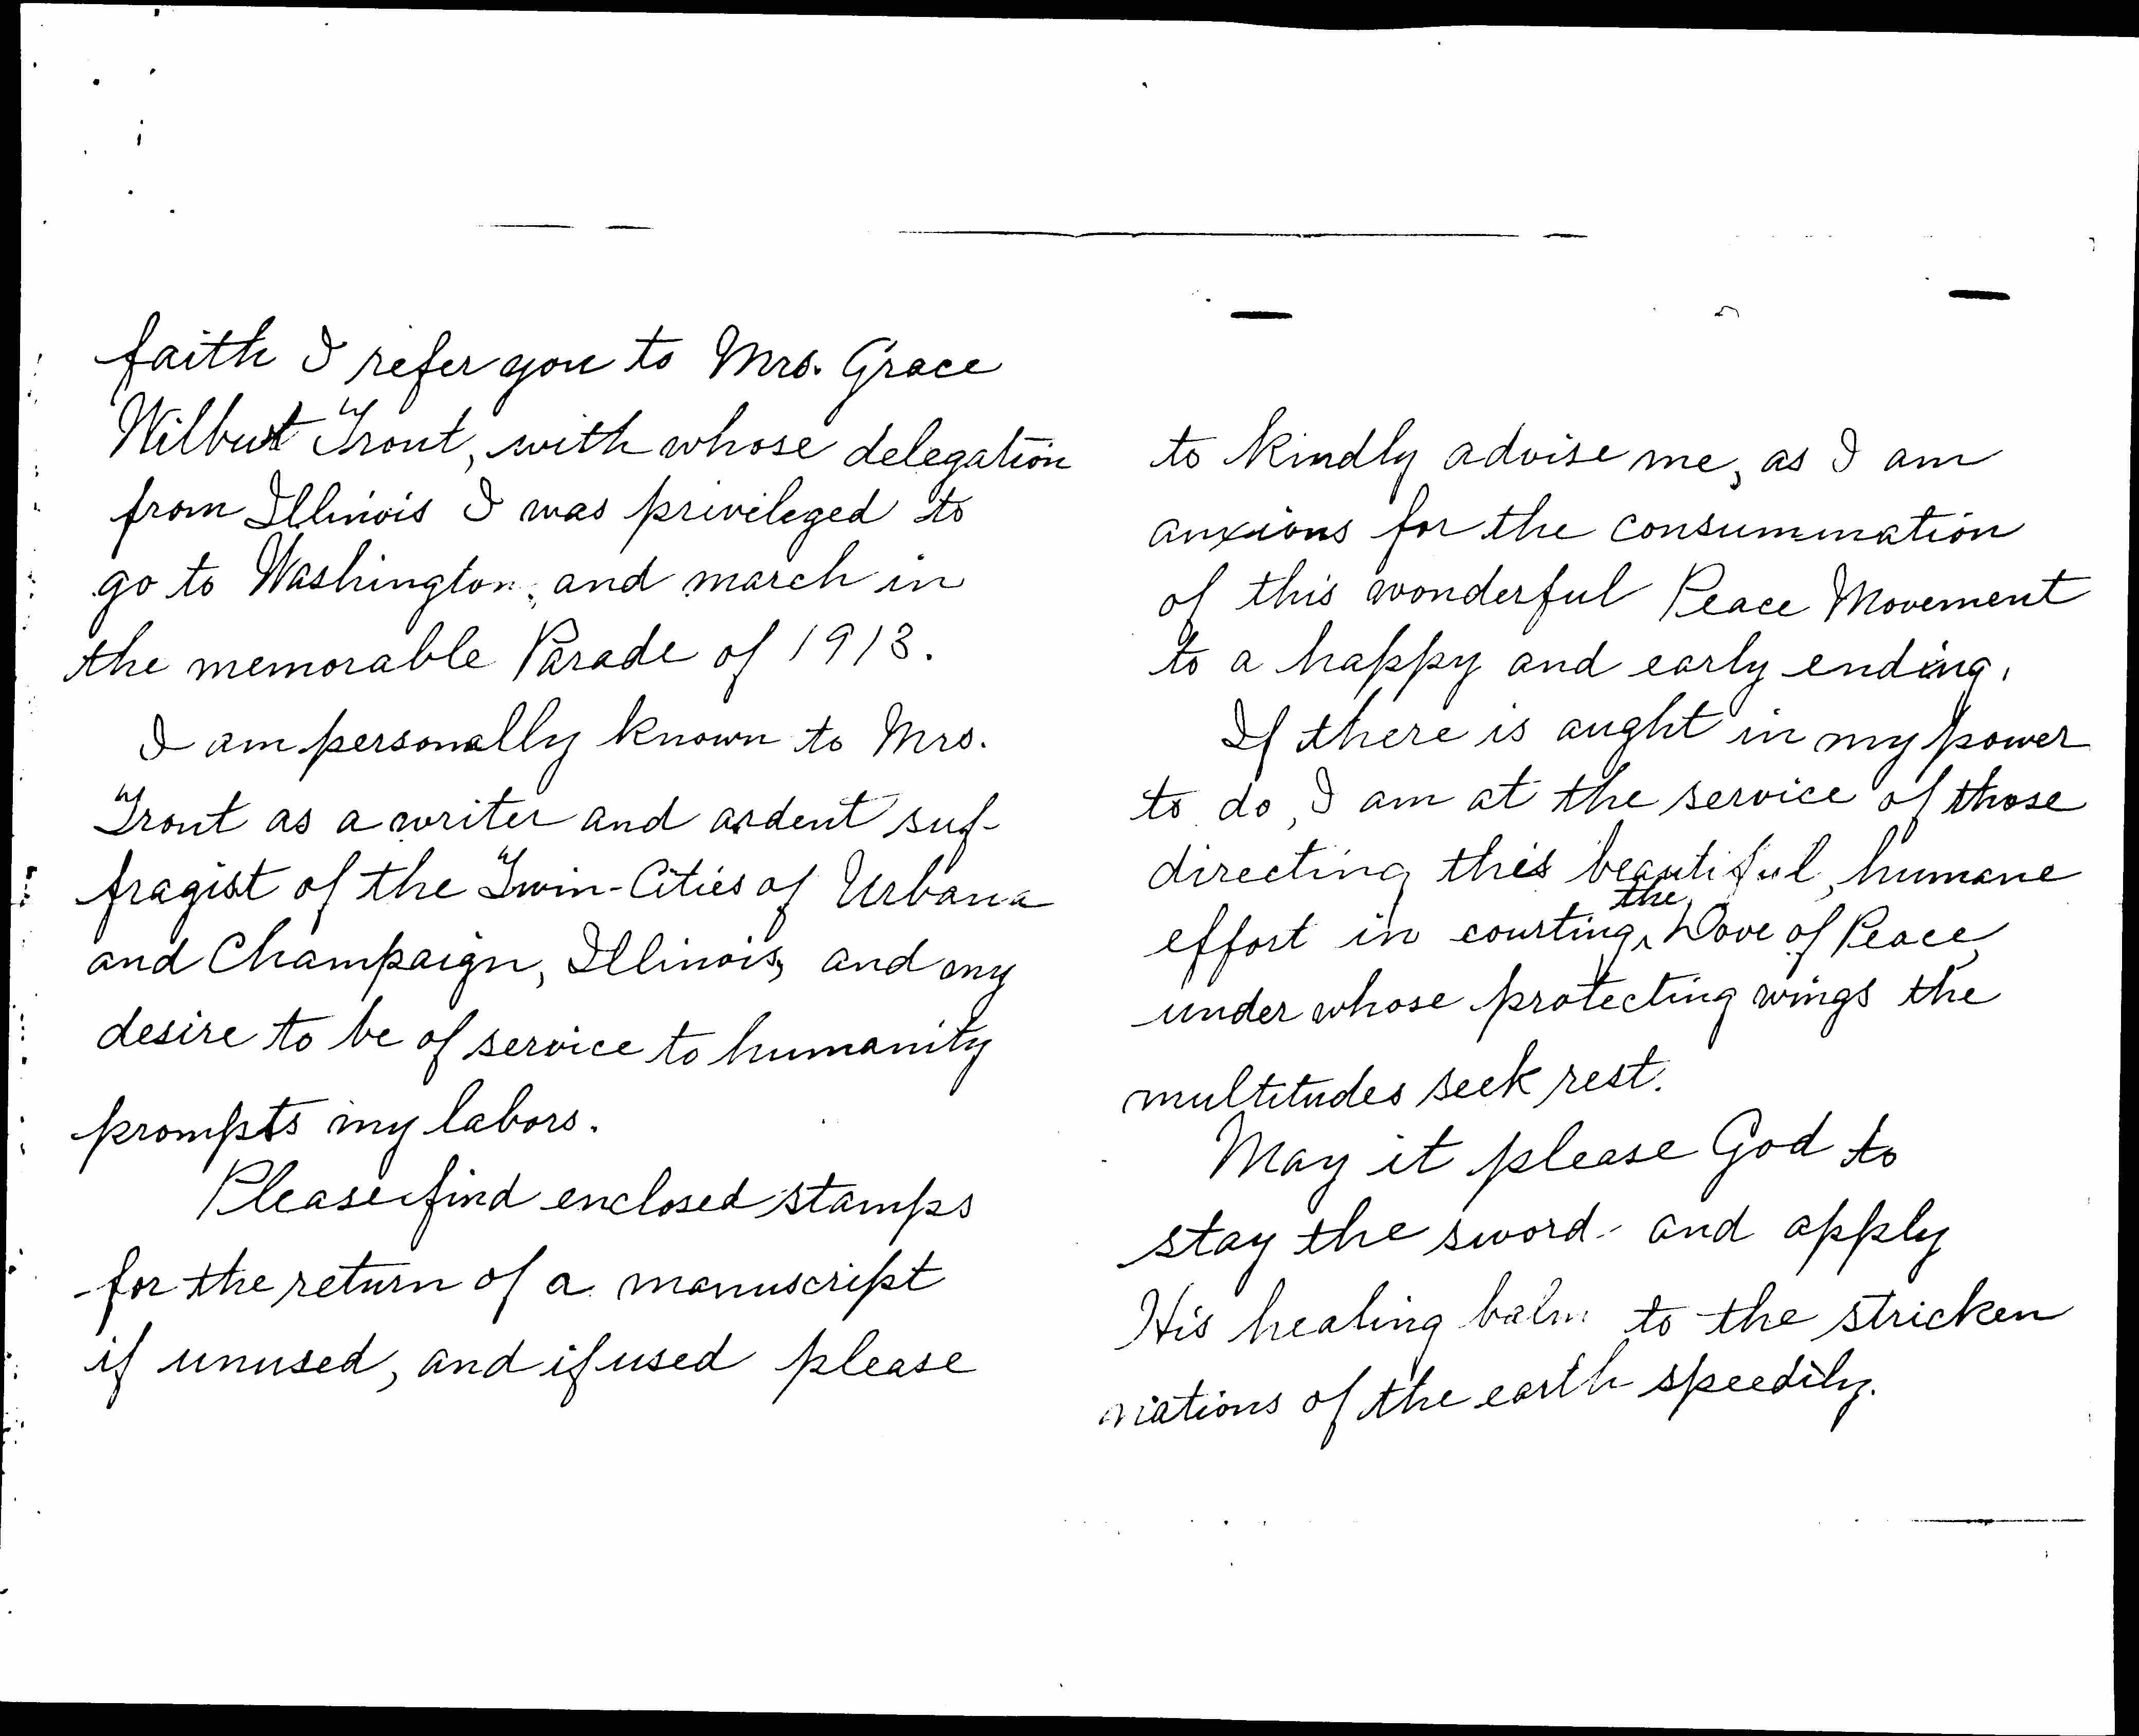 faith I refer you to Mrs. Grace
Wilbut Trout, with whose delegation
from Illinois I was privileged to
go to Washington, and march in
the memorable Parade of 1913.
I am personally known to Mrs.
Trout as a writer and ardent suf-
fragist of the Twin-Cities of Urbana
and Champaign, Illinois, and my
desire to be of service to humanity
prompts my labors.
Please find enclosed stamps
for the return of a manuscript
if unused, and if used please
to kindly advise me, as I am
anxious for the consummation
of this wonderful Peace Movement
to a happy and early ending.
If there is aught in my power
to do, I am at the service of those
directing this beautiful, humane
effort in courting the Dove of Peace,
under whose protecting wings the
multitudes seek rest.
May it please God to
stay the sword - and apply
His healing balm to the stricken
nations of the earth speedily.